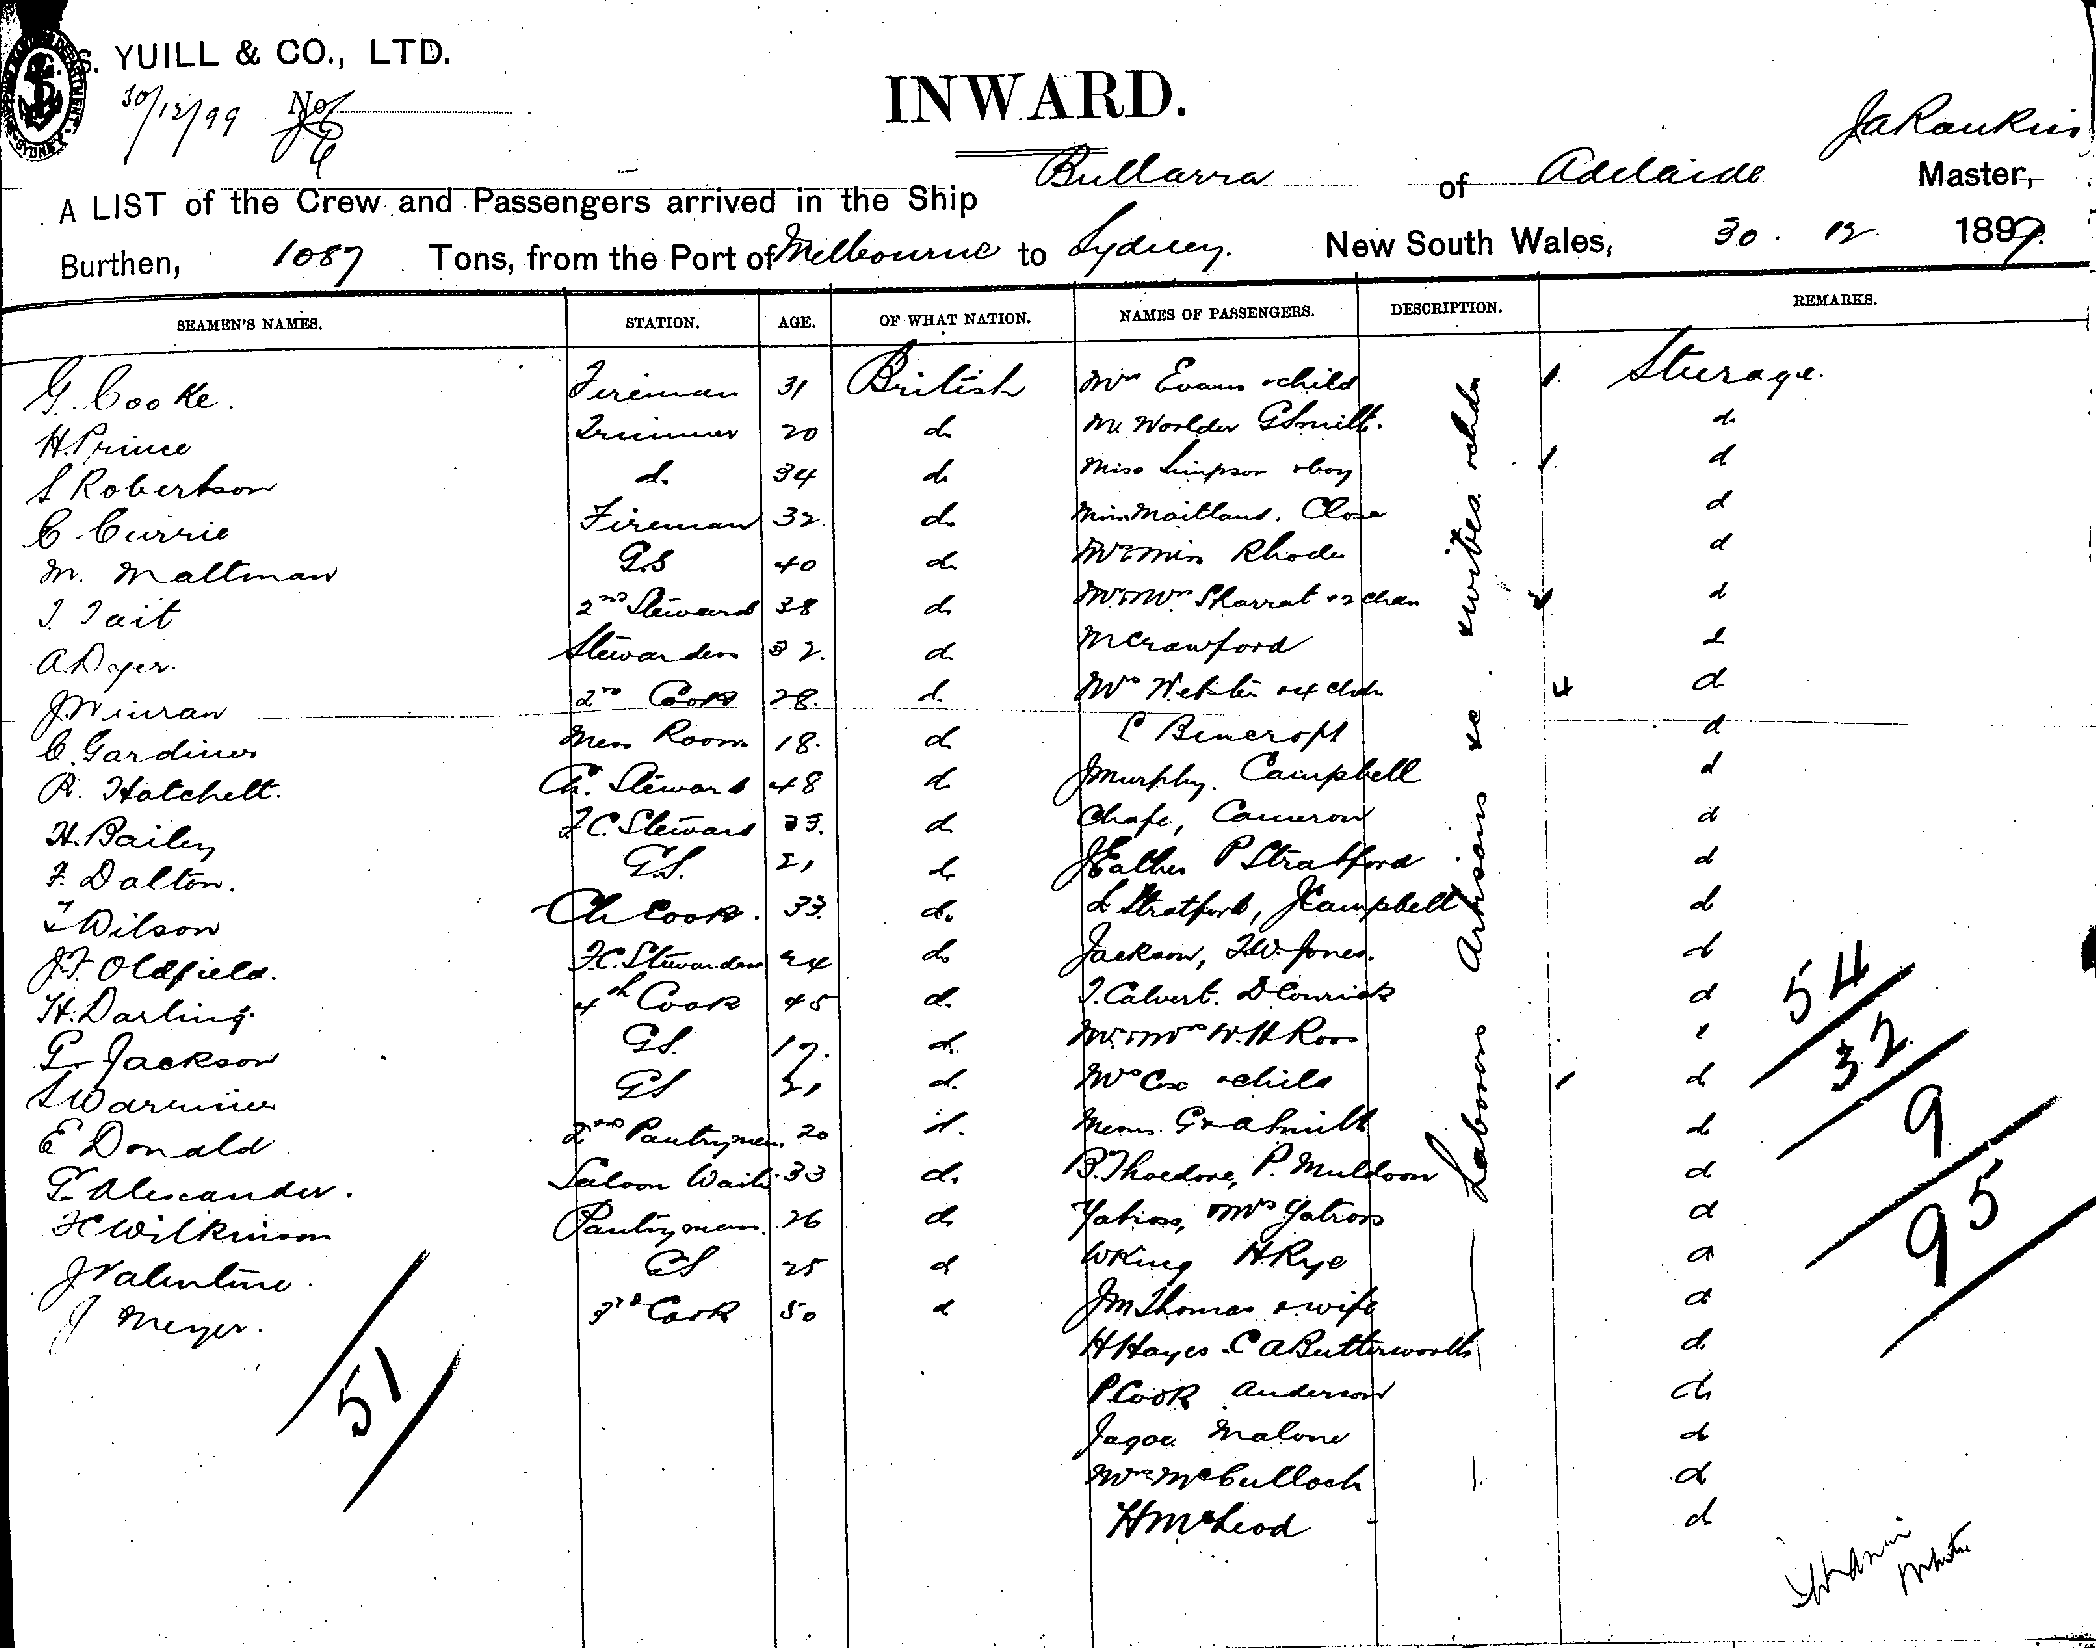 S. YUILL & CO., LTD.
30/12/99
INWARD.
J A Rankin
A LIST of the Crew and Passengers arrived in the Ship Bullarra of Adelaide Master,
Burthen, 1087 Tons, from the Port of Melbourne to Sydney. New South Wales, 30. 12 1899.
SEAMEN'S NAMES. STATION. AGE. OF WHAT NATION. NAMES OF PASSENGERS. DESCRIPTION. REMARKS.
G. Cooke. Fireman 31 British Mrs Evans & child 1. Steerage.
H Prince Trimmer 20 do Mr Woolder G Smith. do
S Robertson do 34 do Miss Simpson & boy 1. do
C Currie Fireman 32. do Miss Maitland. Close do
M. Maltman G.S 40 do Mr & Miss Rhode do
T Tait 2nd Steward 38 do Mr & Mrs Sharrat & 2 chdn do
A Dyer. Stewardess 32. do M Crawford do
2nd Cook 28. do Mrs & 4 chdn 4 do
C. Gardiner Mess Room 18. do C Bencroft do
R. Hatchett. Ch. Steward 48 do J Murphy. Campbell do
H. Bailey F.C. Steward 33. do Chafe, Cameron do
F. Dalton. G.S. 21 do P Stratford do
Wilson Ch Cook. 33. do. L Stratford, J Campbell do
J.F. Oldfield. F.C. Stewardess do Jackson, F.W. Jones. do
H. Darling. 4th Cook 45 do. T. Calvert. D do
Jackson G.S. 19. do. Mr & Mrs W.H Roos
S Warriner G S 21 do. Mrs Cox & child 1 do
E Donald 2nd Pantryman 20 do. Messrs G & A Smith do
Alexander. Saloon Waiter 33 do. B. Thoedore, P. Muldoon do
H Wilkinson Pantryman. 26 do & Mrs Yatros do
J Valentine. G S 25 do W King H. Rye do
J Meyer. 3rd Cook 50 do J M Thomas & wife do
H Hayes C A Butterworth do
P. Cook Anderson do
Malone do
Mrs McCulloch do
H McLeod do
Labourers Artisans &c. & wives & chdn
51
54
32
9
95